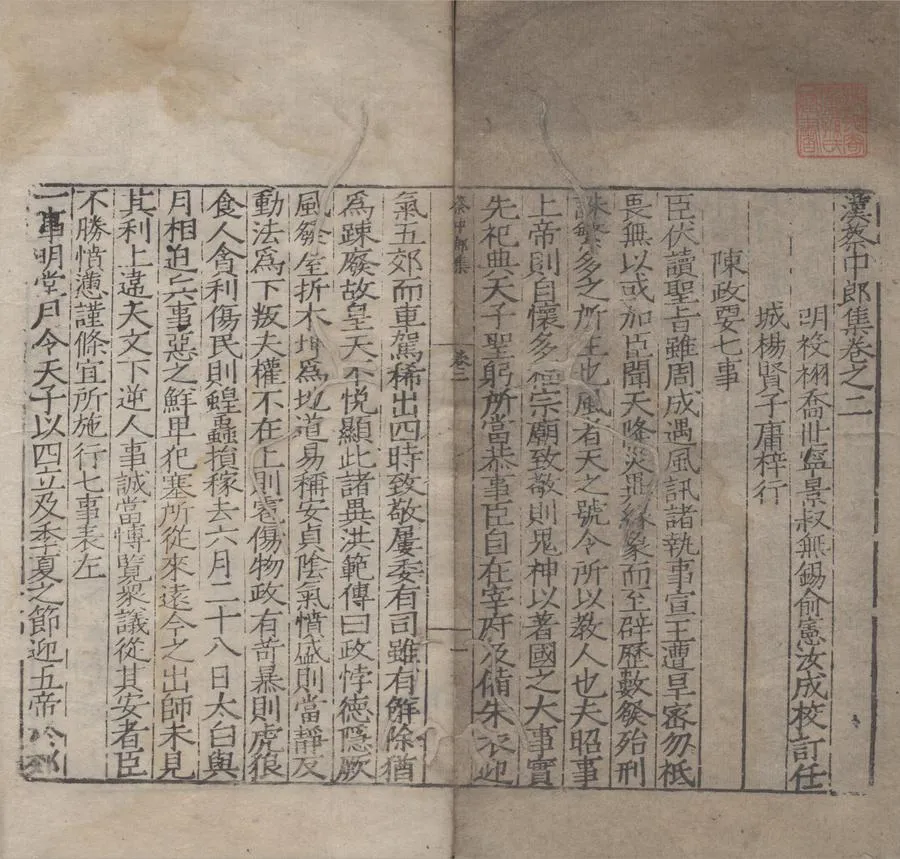 漢蔡中郎集卷之二
明後栁喬世寧景叔無錫俞憲汝成校訂任
城楊賢子庸梓行
陳政要七事
臣伏讀聖旨雖周成遇風訊諸執事宣王遭旱密勿祗
畏無以或加臣聞天降災異緣象而至辟歷數發殆刑
誅繁多之所生也風者天之號令所以教人也夫昭事
上帝則自懷多福宗廟致敬則鬼神以著國之大事實
先祀典天子聖躬所當恭事臣自在宰府及備朱衣迎
蔡中郎集 卷二 一
氣五郊而車駕稀出四時致敬屢委有司雖有解除猶
為疎廢故皇天不悅顯此諸異洪範傳曰政悖德隱厥
風發屋折木坤為地道易稱安貞陰氣憤盛則當靜反
動法為下叛夫權不在上則雹傷物政有苛暴則虎狼
食人貪利傷民則蝗蟲損稼去六月二十八日太白與
月相迫兵事惡之鮮卑犯塞所從來遠今之出師未見
其利上違天文下逆人事誠當博覽衆議從其安者臣
不勝憤懣謹條宜所施行七事表左
一事明堂月令天子以四立及季夏之節迎五帝於郊